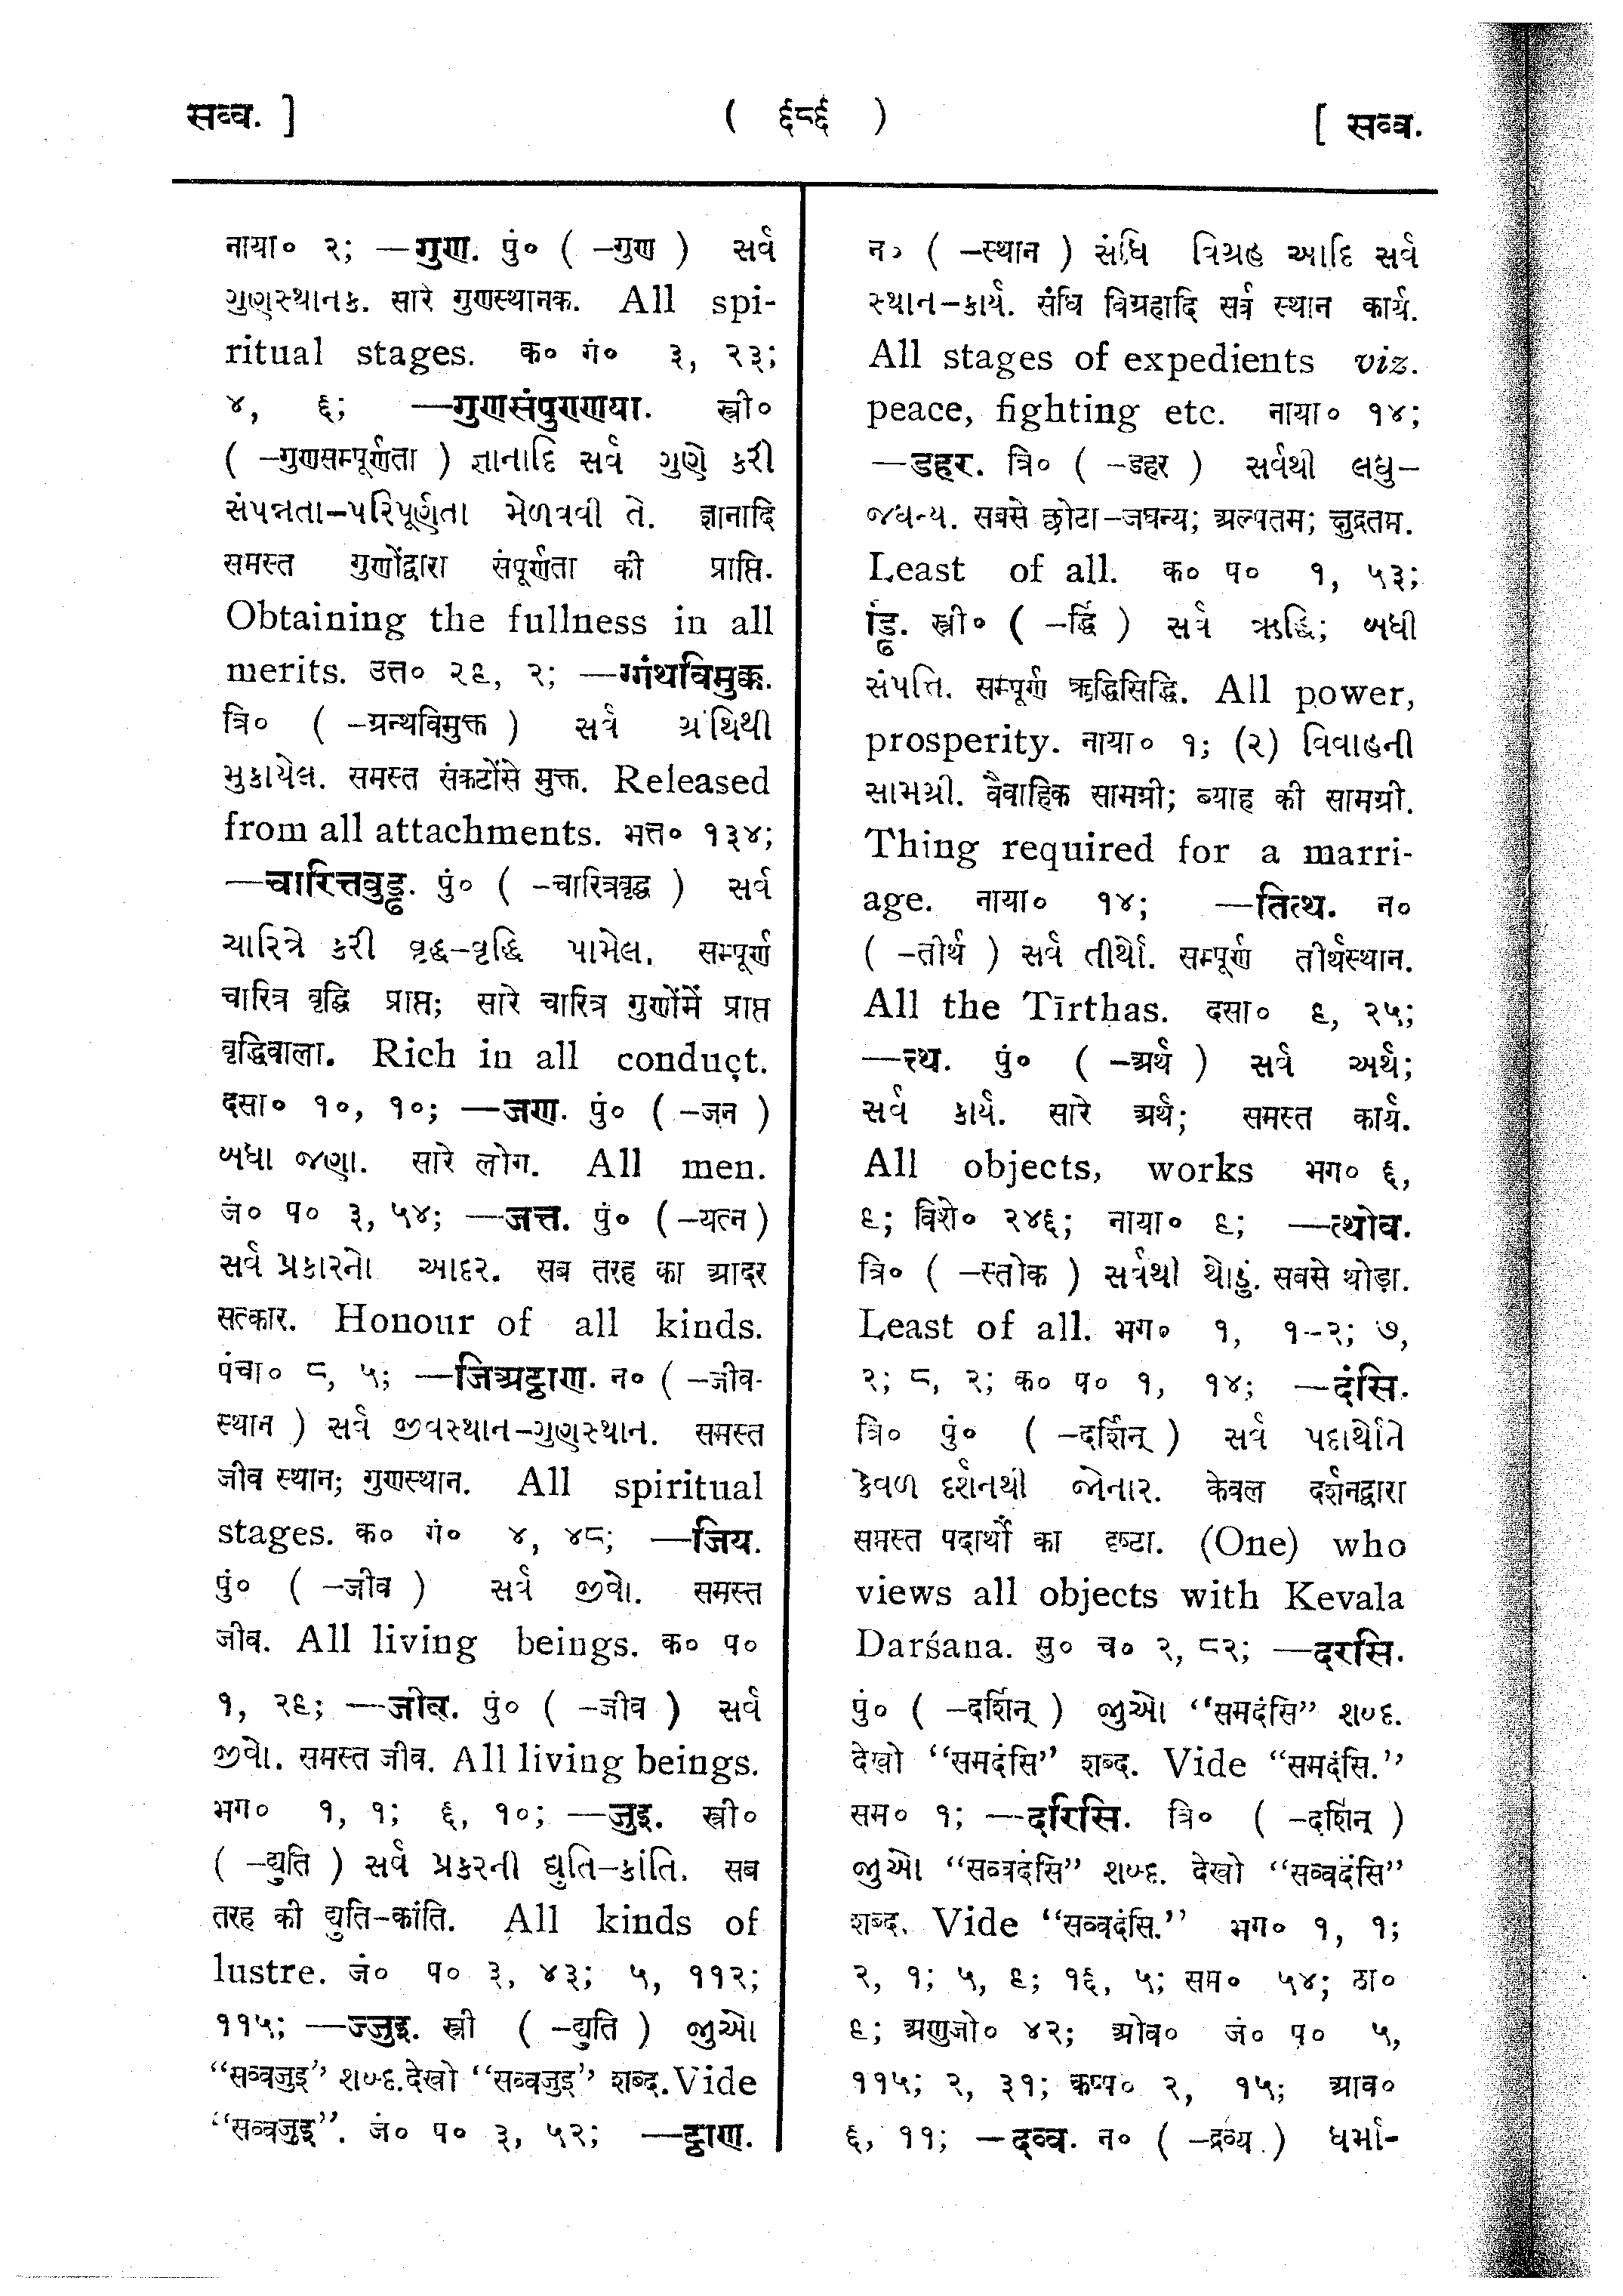 सव्व. ]
( ६८६ )
[ सव्व.
नाया० २; —गुण. पुं० ( –गुण ) સર્વ
ગુણસ્થાનક. सारे गुणस्थानक. All spi-
ritual stages. क० गं० ३, २३;
४, ६; —गुणसंपुण्णया. स्त्री०
( –गुणसम्पूर्णता ) જ્ઞાનાદિ સર્વ ગુણે કરી
સંપન્નતા–પરિપૂર્ણતા મેળવવી તે. ज्ञानादि
समस्त गुणोंद्वारा संपूर्णता की प्राप्ति.
Obtaining the fullness in all
merits. उत्त० २९, २; —ग्गंथविमुक्क.
त्रि० ( –ग्रन्थविमुक्त ) સર્વ ગ્રંથિથી
મુકાયેલ. समस्त संकटोंसे मुक्त. Released
from all attachments. भत्त० १३४;
—चारित्तवुड्ढ. पुं० ( –चारित्रवृद्ध ) સર્વ
ચારિત્રે કરી વૃદ્ધ–વૃદ્ધિ પામેલ. सम्पूर्ण
चारित्र वृद्धि प्राप्त; सारे चारित्र गुणोंमें प्राप्त
वृद्धिवाला. Rich in all conduct.
दसा० १०, १०; —जण. पुं० ( –जन )
બધા જણા. सारे लोग. All men.
जं० प० ३, ५४; —जत्त. पुं० (–यत्न)
સર્વ પ્રકારનો આદર. सब तरह का आदर
सत्कार. Honour of all kinds.
पंचा० ८, ५; —जिअट्ठाण. न० ( –जीव-
स्थान ) સર્વ જીવસ્થાન–ગુણસ્થાન. समस्त
जीव स्थान; गुणस्थान. All spiritual
stages. क० गं० ४, ४८; —जिय.
पुं० ( –जीव ) સર્વ જીવો. समस्त
जीव. All living beings. क० प०
१, २९; —जीव. पुं० ( –जीव ) સર્વ
જીવો. समस्त जीव. All living beings.
भग० १, १; ६, १०; —जुइ. स्त्री०
( –द्युति ) સર્વ પ્રકારની દ્યુતિ–કાંતિ. सब
तरह की द्युति–कांति. All kinds of
lustre. जं० प० ३, ४३; ५, ११२;
११५; —ज्जुइ. स्त्री ( –द्युति ) જીઓ
“सव्वजुइ” શબ્દ. देखो “सव्वजुइ” शब्द. Vide
“सव्वजुइ”. जं० प० ३, ५२; —ट्ठाण.
न० ( –स्थान ) સંધિ વિગ્રહ આદિ સર્વ
સ્થાન–કાર્ય. संधि विग्रहादि सर्व स्थान कार्य.
All stages of expedients viz.
peace, fighting etc. नाया० १४;
—डहर. त्रि० ( –डहर ) સર્વથી લઘુ–
જઘન્ય. सबसे छोटा–जघन्य; अल्पतम; क्षुद्रतम.
Least of all. क० प० १, ५३;
ड्ढि. स्त्री० ( –र्द्धि ) સર્વ ઋદ્ધિ; બધી
સંપત્તિ. सम्पूर्ण ऋद्धिसिद्धि. All power,
prosperity. नाया० १; (२) વિવાહની
સામગ્રી. वैवाहिक सामग्री; ब्याह की सामग्री.
Thing required for a marri-
age. नाया० १४; —तित्थ. न०
( –तीर्थ ) સર્વ તીર્થો. सम्पूर्ण तीर्थस्थान.
All the Tīrthas. दसा० ९, २५;
—त्थ. पुं० ( –अर्थ ) સર્વ અર્થ;
સર્વ કાર્ય. सारे अर्थ; समस्त कार्य.
All objects, works भग० ६,
९; विशे० २४६; नाया० ९; —त्थोव.
त्रि० ( –स्तोक ) સર્વથી થોડું. सबसे थोड़ा.
Least of all. भग० १, १–२; ७,
२; ८, २; क० प० १, १४; —दंसि.
त्रि० पुं० ( –दर्शिन् ) સર્વ પદાર્થોને
કેવળ દર્શનથી જોનાર. केवल दर्शनद्वारा
समस्त पदार्थों का दृष्टा. (One) who
views all objects with Kevala
Darśana. सु० च० २, ८२; —दरसि.
पुं० ( –दर्शिन् ) જીઓ “समदंसि” શબ્દ.
देखो “समदंसि” शब्द. Vide “समदंसि.”
सम० १; —दरिसि. त्रि० ( –दर्शिन् )
જીઓ “सव्वदंसि” શબ્દ. देखो “सव्वदंसि”
शब्द. Vide “सव्वदंसि.” भग० १, १;
२, १; ५, ९; १६, ५; सम० ५४; ठा०
९; अणुजो० ४२; ओव० जं० प० ५,
११५; २, ३१; कप्प० २, १५; आव०
६, ११; —दव्व. न० ( –द्रव्य ) ધર્મા-